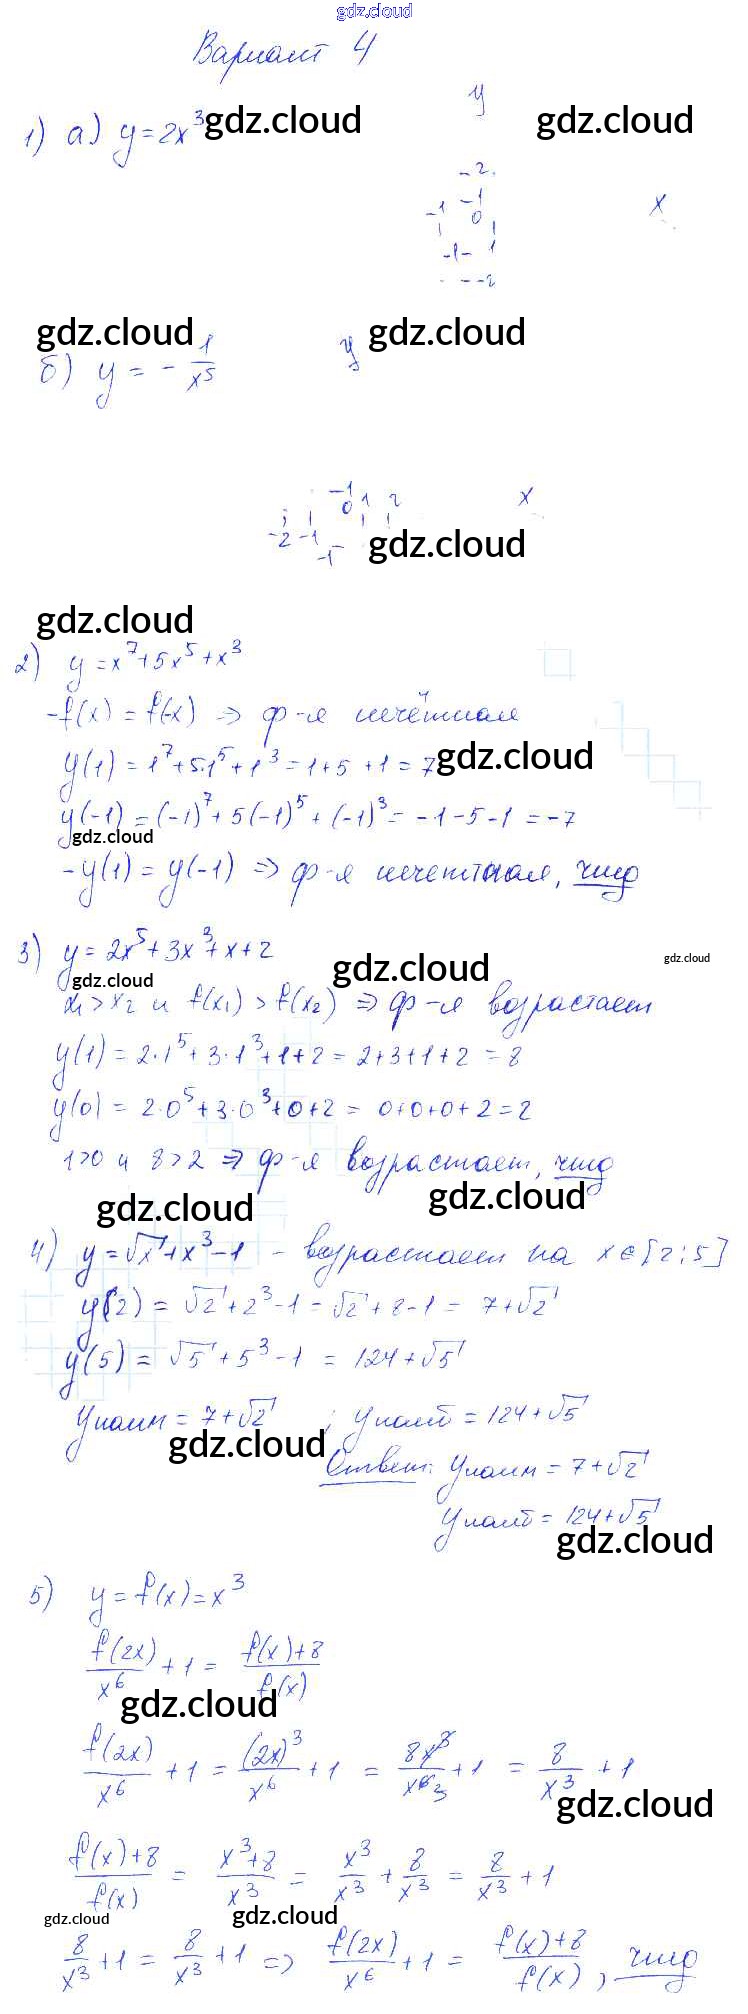 gdz.cloud
Вариант 4
1) а) y = 2x³ gdz.cloud gdz.cloud
y
-2
-1 -1
0 x
-1- 1
-2
gdz.cloud gdz.cloud
б) y = - 1/x⁵ y
-1 1 2 x
0
-2 -1
-1
gdz.cloud
gdz.cloud
2) y = x⁷ + 5x⁵ + x³
-f(x) = f(-x) => ф-я нечётная
y(1) = 1⁷ + 5·1⁵ + 1³ = 1 + 5 + 1 = 7 gdz.cloud
y(-1) = (-1)⁷ + 5(-1)⁵ + (-1)³ = -1 - 5 - 1 = -7
gdz.cloud
-y(1) = y(-1) => ф-я нечетная, чтд
3) y = 2x⁵ + 3x³ + x + 2
gdz.cloud gdz.cloud gdz.cloud
x₁ > x₂ и f(x₁) > f(x₂) => ф-я возрастает
y(1) = 2·1⁵ + 3·1³ + 1 + 2 = 2 + 3 + 1 + 2 = 8
y(0) = 2·0⁵ + 3·0³ + 0 + 2 = 0 + 0 + 0 + 2 = 2
1 > 0 и 8 > 2 => ф-я возрастает, чтд
gdz.cloud gdz.cloud
4) y = √x + x³ - 1 - возрастает на x ∈ [2; 5]
y(2) = √2 + 2³ - 1 = √2 + 8 - 1 = 7 + √2
y(5) = √5 + 5³ - 1 = 124 + √5
yнаим = 7 + √2 ; yнаиб = 124 + √5
gdz.cloud
Ответ: yнаим = 7 + √2
yнаиб = 124 + √5
gdz.cloud
5) y = f(x) = x³
f(2x)/x⁶ + 1 = (f(x) + 8)/f(x)
gdz.cloud
f(2x)/x⁶ + 1 = (2x)³/x⁶ + 1 = 8x³/x⁶ ³ + 1 = 8/x³ + 1
gdz.cloud
(f(x) + 8)/f(x) = (x³ + 8)/x³ = x³/x³ + 8/x³ = 8/x³ + 1
gdz.cloud gdz.cloud
8/x³ + 1 = 8/x³ + 1 => f(2x)/x⁶ + 1 = (f(x) + 8)/f(x), чтд